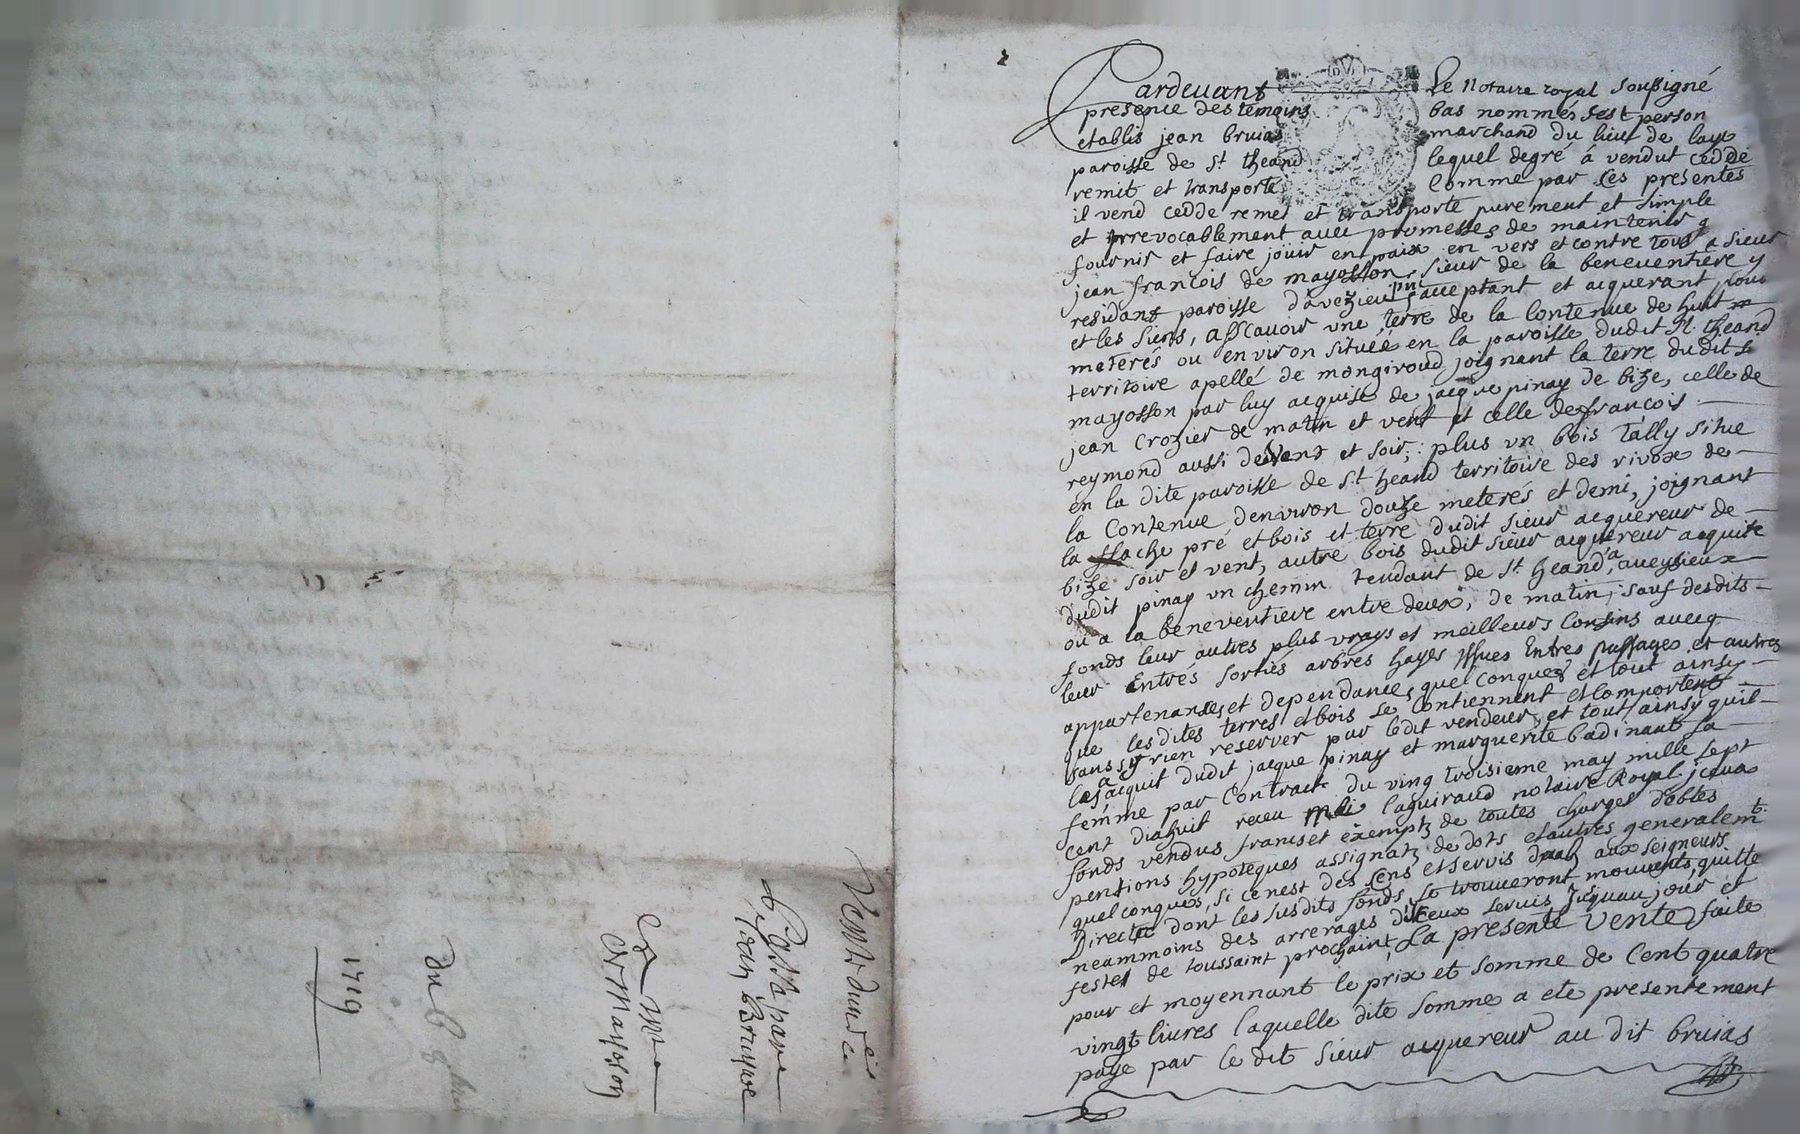 Pardevant Le Notaire royal soussigné
presence des temoins bas nommés sest person
etablis jean bruias marchand du lieu de laye
paroisse de st theand lequel degré á vendut ceddé
remit et transporte Comme par Ces presentes
il vend cedde remet et transporte purement et simple
et irrevocablement avec promesses de maintenir
fournir et faire jouir en paix en vers et contre tous a sieur
jean francois de mayosson sieur de la beneventiere y
residant paroisse davezieu acceptant et acquerant pour
et les siens, ascavoir une terre de la Contenue de huit
meterés ou environ située en la paroisse dudit st theand
territoire apellé de mongiroud joignant la terre dudit si
mayosson par luy acquise de jacque pinay de bize, celle de
jean Crozier de matin et vent et celle de francois
reymond aussi de vent et soir, plus un bois Tally situe
en la dite paroisse de st heand territoire des rivoix de
la Contenue denviron douze meterés et demi, joignant
la flache pré et bois et terre dudit sieur acquereur de
bize soir et vent, autre bois dudit sieur acquereur acquise
dudit pinay un chemin tendant de st heand a aveysieux
ou a la beneventiere entre deux, de matin, sauf desdits
fonds leur autres plus vrays et meilleurs Confins avecq
leur Entrés sortiés arbres hayes issues Entres passages et autres
appartenances et dependances quelconques et tout ainsy
que lesdites terres et bois se Contiennent et Comportent
sans y rien reserver par ledit vendeur, et tout ainsy quil
les a acquit dudit jacque pinay et marguerite badinant sa
femme par Contract du ving troisieme may mille sept
cent diahuit receu Me laguiraud notaire Royal, iceux
fonds vendus francs et exemptz de toutes charges dobles
pentions hypoteques assignatz de dots et autres generalemt
quelconques, si ce nest des Cens et servis deubz aux seigneurs
Directes dont les susdits fonds se trouveront mouvents, quitte
neammoins des arrerages diceux servis Jusquau jour et
festes de toussaint prochaint, La presente Vente faite
pour et moyennant le prix et somme de Cent quatre
vingt livres laquelle dite somme a ete presentement
paye par le dit sieur acquereur au dit bruias
Jean Bruyas
Mayosson
1719